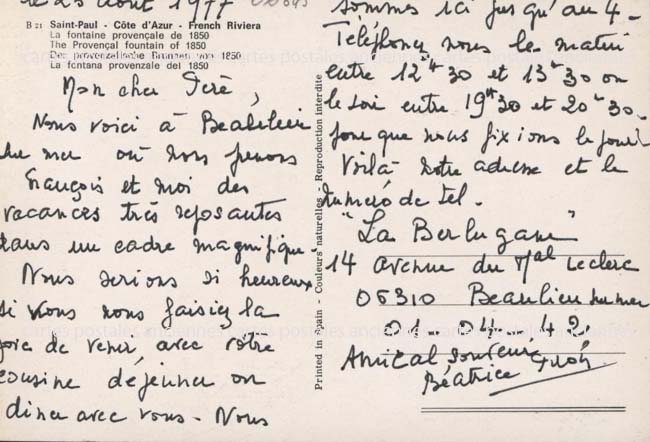 le 25 Août 1977
B 21 Saint-Paul - Côte d'Azur - French Riviera
La fontaine provençale de 1850
The Provençal fountain of 1850
Der provenzalische Brunnen von 1850
La fontana provenzale del 1850
Mon cher
Nous voici à Beaulieu
mer où nous
François et moi des
vacances très reposantes
dans un cadre magnifique
Nous serions si heureux
si vous nous faisiez la
joie de venir, avec vôtre
cousine déjeuner ou
diner avec vous - Nous
Printed in Spain - Couleurs naturelles - Reproduction interdite
sommes ici jusqu'au 4 -
Téléphonez nous le matin
entre 12h30 et 13h30 ou
le soir entre 19h30 et 20h30 -
pour que nous fixions le jour
Voilà notre adresse et le
numéro de tel -
"La Berlugane"
14 Avenue du Mal Leclerc
06310 Beaulieu sur mer
01 - 04 - 42
Amical souvenir
Béatrice